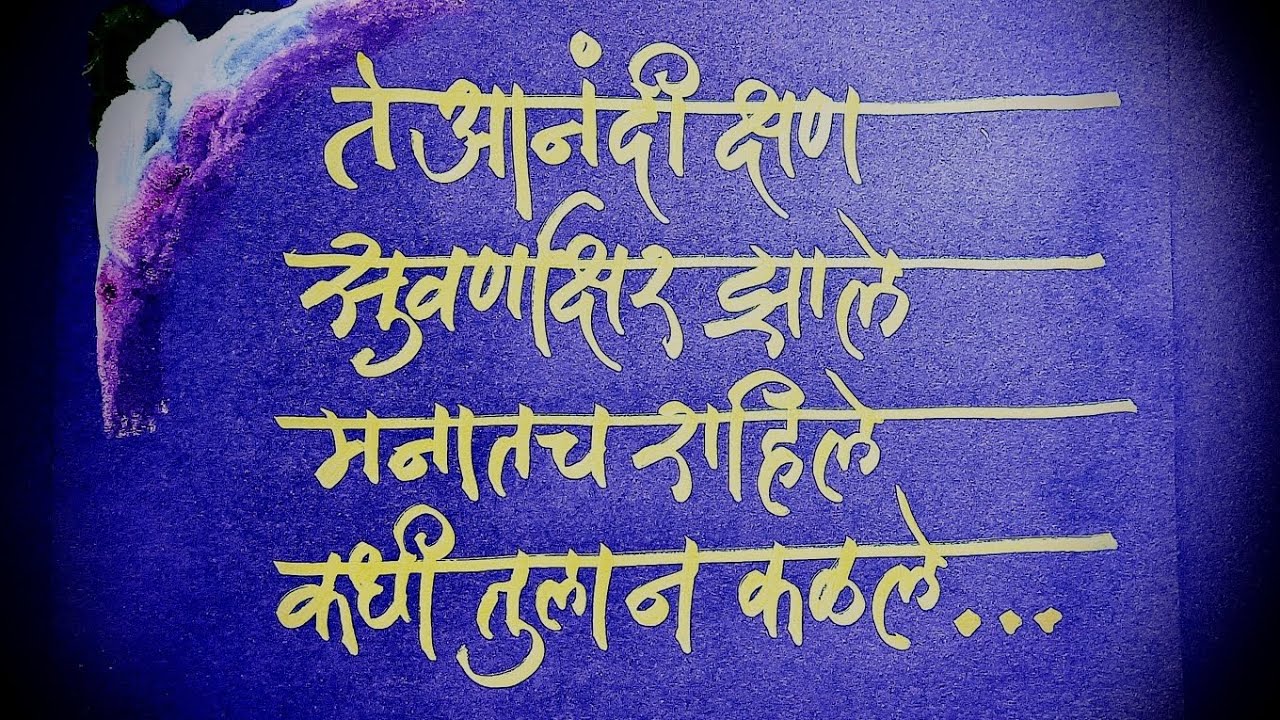 ते आनंदी क्षण
सुवणक्षिर झाले
मनातच राहिले
कधी तुला न कळले...